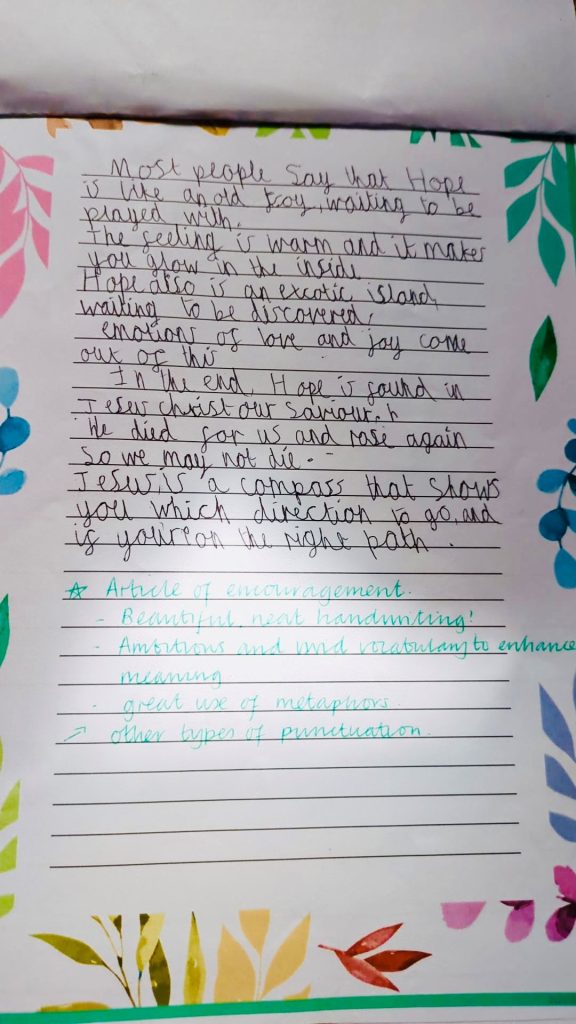 Most people Say that Hope
is like an old toy, waiting to be
played with.
The feeling is warm and it makes
you glow in the inside
Hope also is an excotic island,
waiting to be discovered,
emotions of love and joy come
out of this
In the end, Hope is found in
Jesus Christ our Saviour.
He died for us and rose again
So we may not die.
Jesus is a compass that shows
you which direction to go, and
is you're on the right path.
☆ Article of encouragement.
- Beautiful, neat handwriting!
- Ambitious and vivid vocabulary to enhance
meaning
- great use of metaphors.
↗ other types of punctuation.